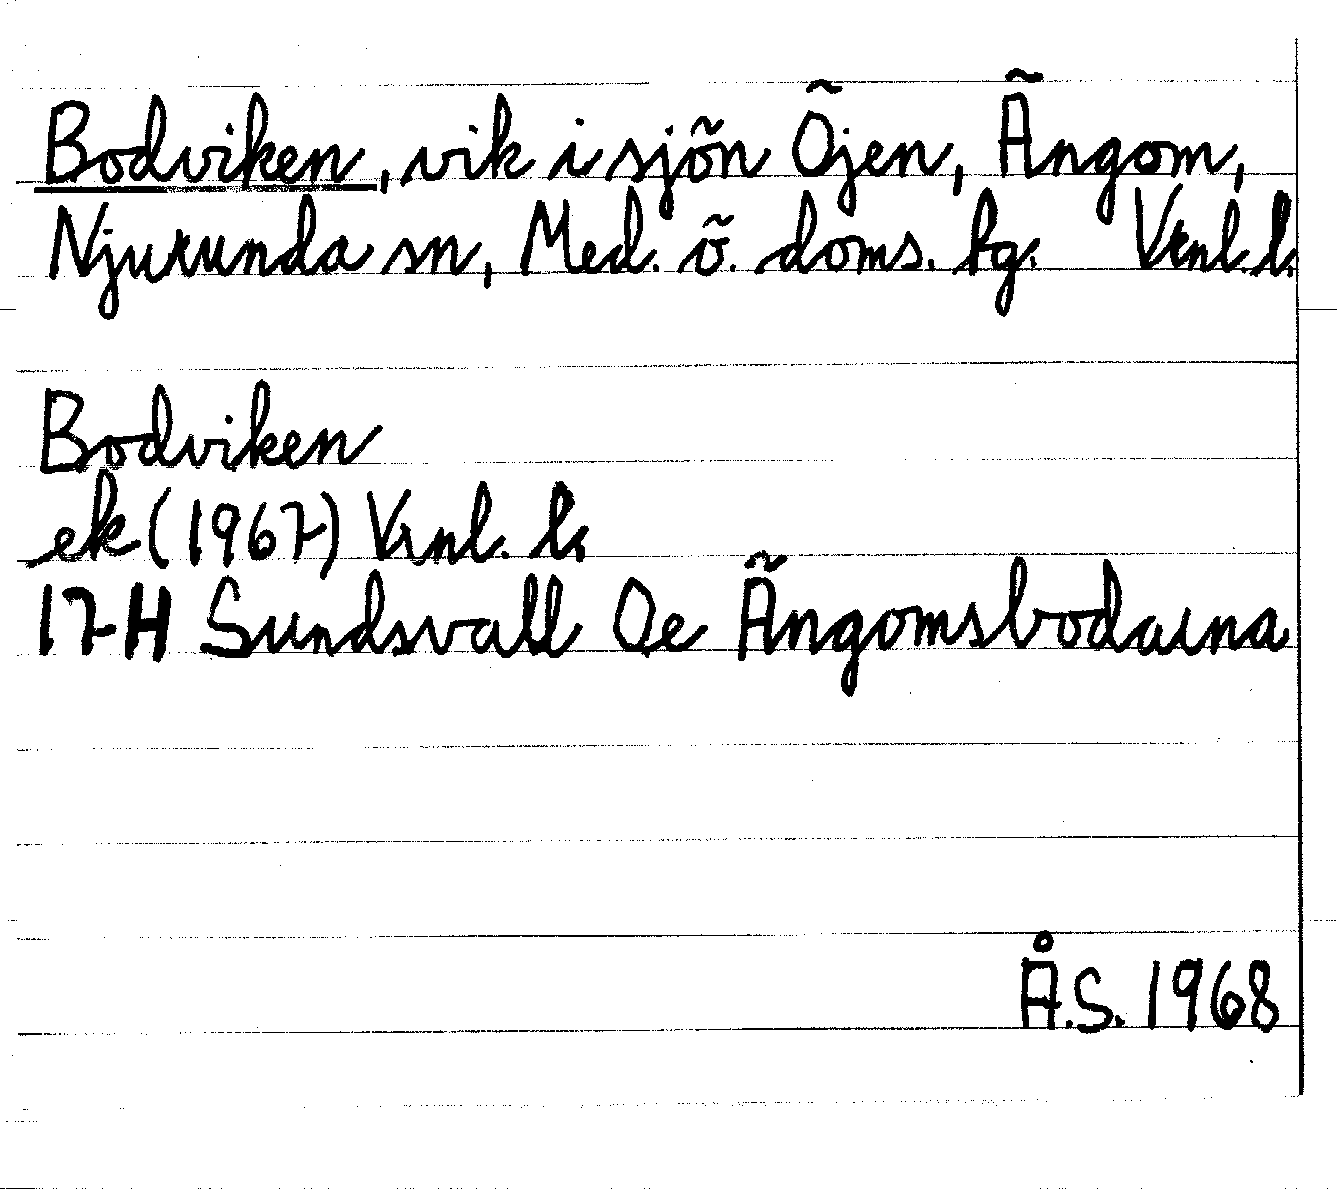 Bodviken, vik i sjön Öjen, Ängom,
Njurunda sn, Med. ö. doms. tg. Vrnl. l.
Bodviken
ek (1967) Vrnl. l.
17H Sundsvall Oe Ängomsbodarna
Å.S. 1968